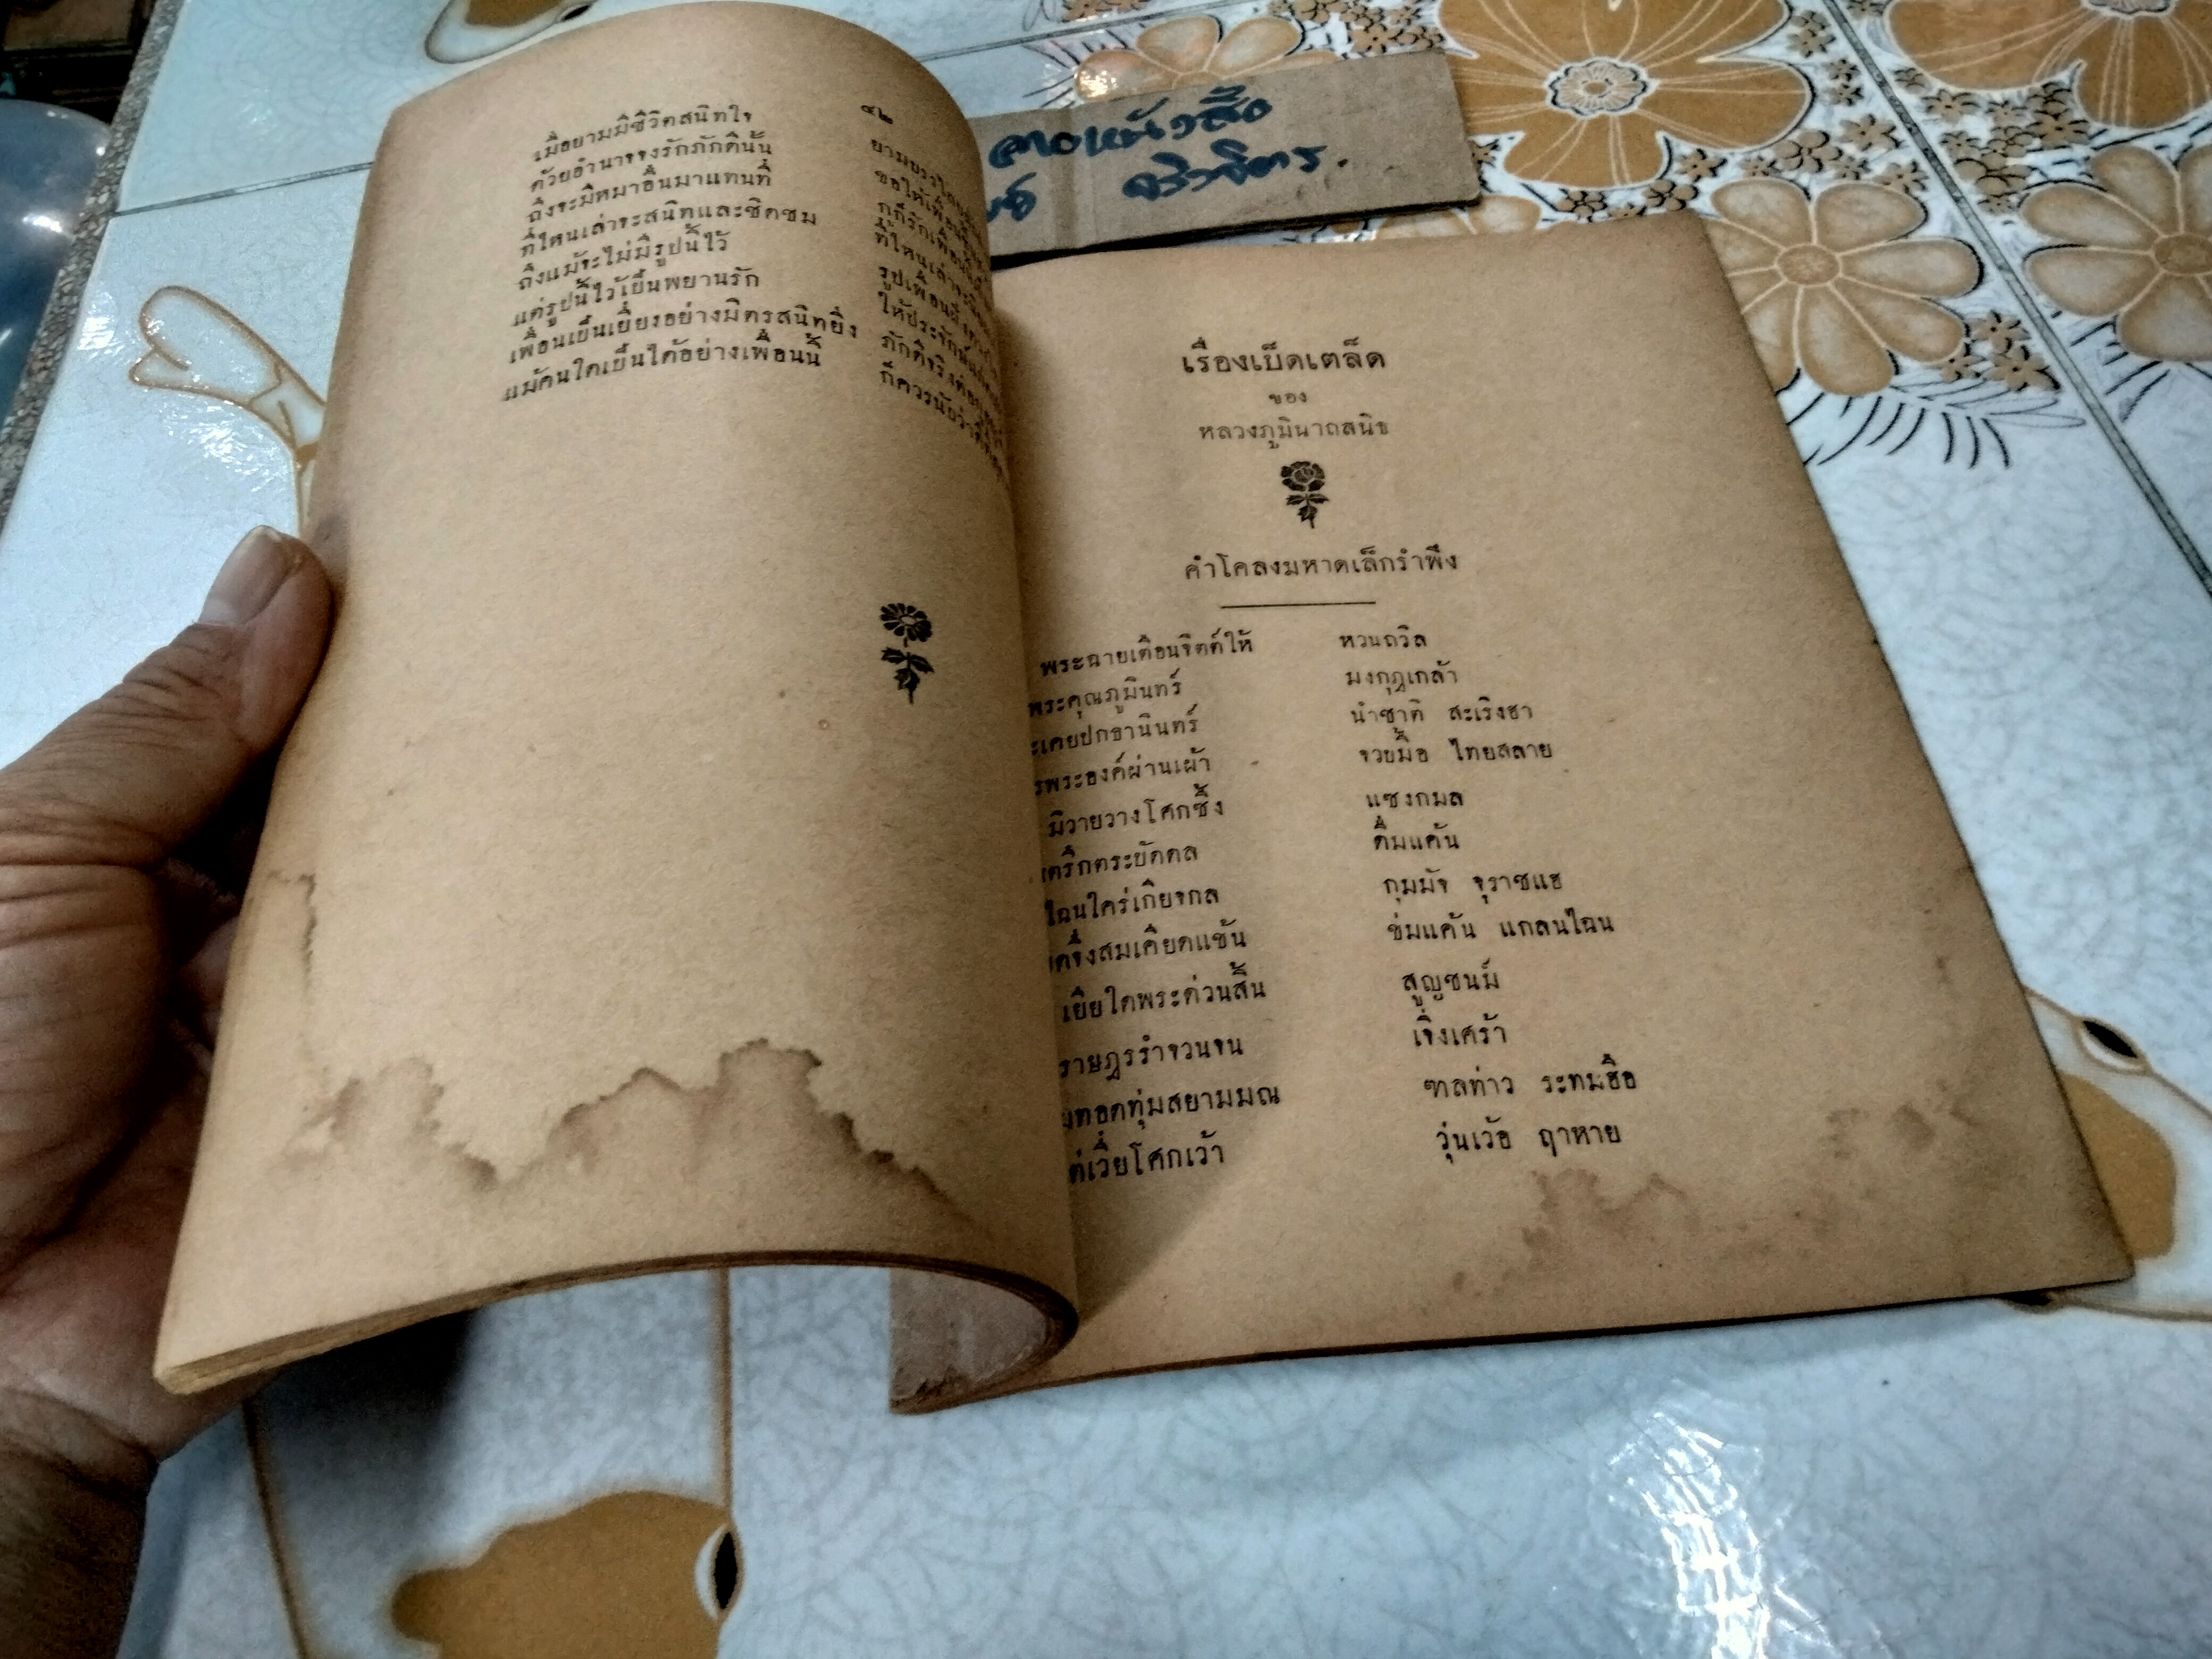 ๔๒
เมื่อยามมีชีวิตสนิทใจ
ด้วยอำนาจจงรักภักดีนั้น
ถึงจะมีหมาอื่นมาแทนที่
ที่ไหนเล่าจะสนิทและชิดชม
ถึงแม้จะไม่มีรูปนี้ไว้
แต่รูปนี้ไว้เป็นพยานรัก
เพื่อนเป็นเยี่ยงอย่างมิตรสนิทยิ่ง
แม้คนใดเป็นได้อย่างเพื่อนนี้
ขอให้เพื่อน
กูก็รักเพื่อน
ที่ไหนเล่าจะ
รูปเพื่อน
ให้ประจักษ์
ภักดีจริงต่อ
ก็ควรนับว่าดี
ลายหนังสือ
จิวจิตร.
เรื่องเบ็ดเตล็ด
ของ
หลวงภูมินาถสนิธ
คำโคลงมหาดเล็กรำพึง
พระฉายเตือนจิตต์ให้ หวนถวิล
พระคุณภูมินทร์ มงกุฎเกล้า
เคยปกธานินทร์ นำชาติ สะเริงฮา
พระองค์ผ่านเผ้า จวบมื้อ ไทยสลาย
มิวายวางโศกซึ้ง แซงกมล
ตริกตระบัดดล ดื่มแค้น
ไฉนใคร่เกียจกล กุมมัจ จุราชแฮ
จึ่งสมเคียดแช้น ข่มแค้น แกลนไฉน
เยียใดพระด่วนสิ้น สูญชนม์
ราษฎรรำจวนจน เจิ่งเศร้า
ทอดทุ่มสยามมณ ฑลท่าว ระทมฮือ
เวี่ยโศกเว้า วุ่นเว้อ ฤาหาย